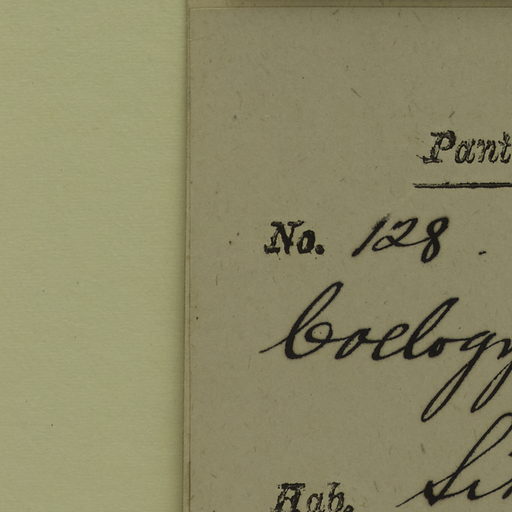 Pant
No. 128.
Coelogy
Hab. Sik